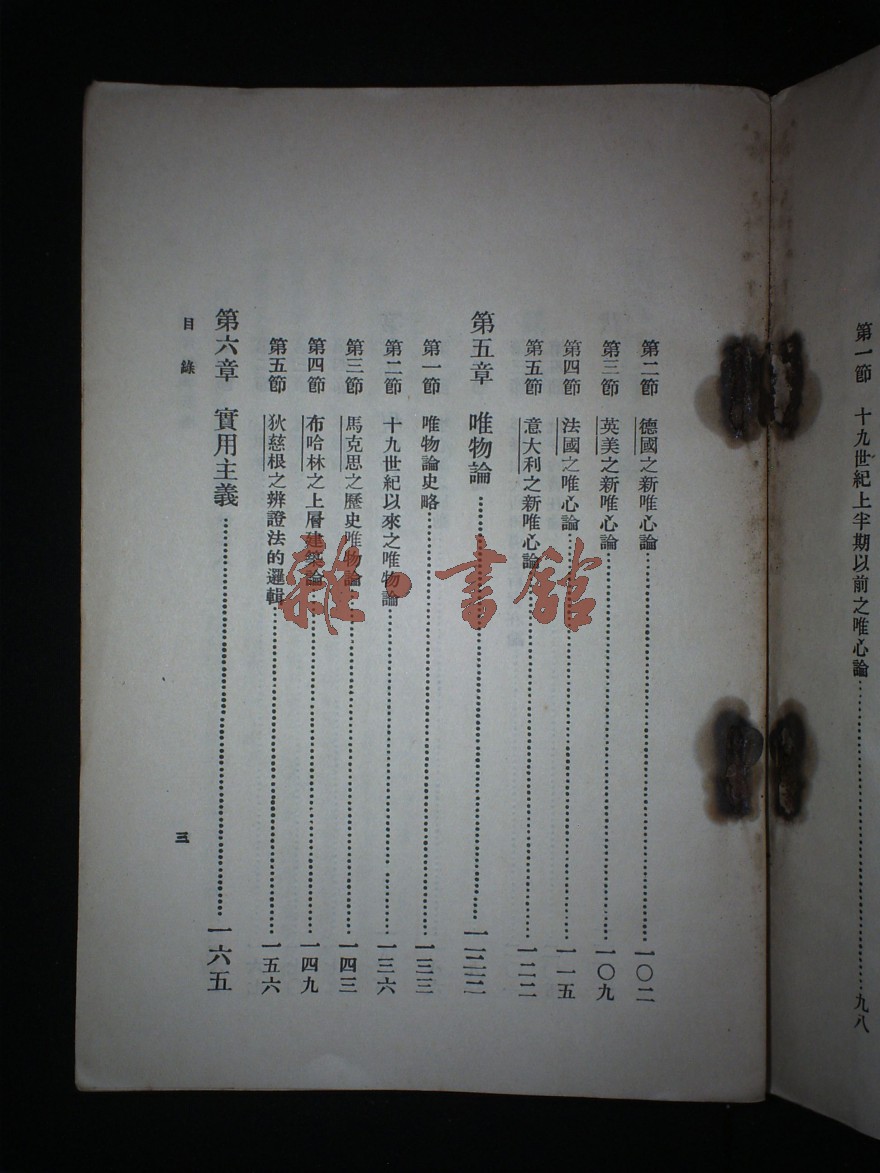 第一節 十九世紀上半期以前之唯心論……九八
第二節 德國之新唯心論……一〇二
第三節 英美之新唯心論……一〇九
第四節 法國之唯心論……一一五
第五節 意大利之新唯心論……一二二
第五章 唯物論……一三三
第一節 唯物論史略……一三三
第二節 十九世紀以來之唯物論……一三六
第三節 馬克思之歷史唯物論……一四三
第四節 布哈林之上層建築論……一四九
第五節 狄慈根之辨證法的邏輯……一五六
第六章 實用主義……一六五
目錄
三
雜·書館